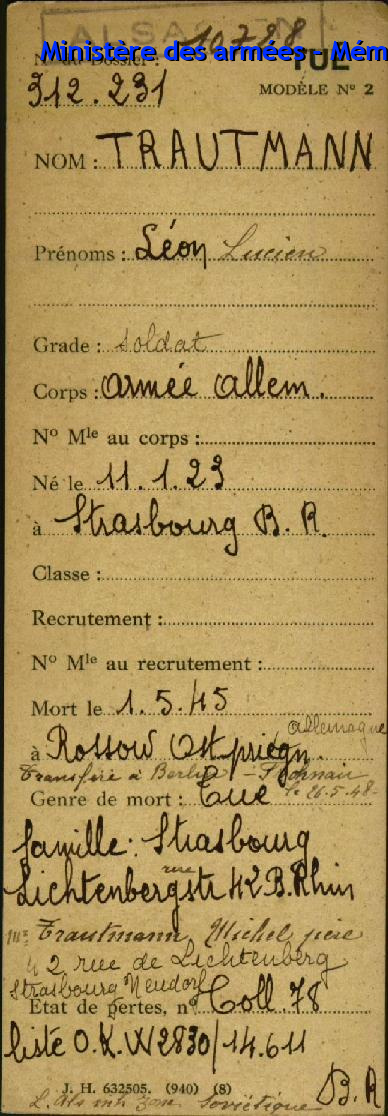 ALSACIEN
Ministère des armées - Mém
N° du Dossier : 10788
TUÉ
312.231
MODÈLE N° 2
NOM : TRAUTMANN
Prénoms : Léon Lucien
Grade : soldat
Corps : armée allem.
N° Mle au corps :
Né le 11.1.23
à Strasbourg B.R.
Classe :
Recrutement :
N° Mle au recrutement :
Mort le 1.5.45
allemagne
à Rossow Ostpriegn.
Transféré à Berlin -
le 26-5-48
Genre de mort : Tué
famille : Strasbourg
rue
Lichtenbergstr 42 B. Rhin
Mr Trautmann Michel père
42 rue de Lichtenberg
Strasbourg Neudorf
État de pertes, n° Coll. 78
liste O.K.W 2830/14.611
J. H. 632505. (940) (8)
B.R
zone Soviétique